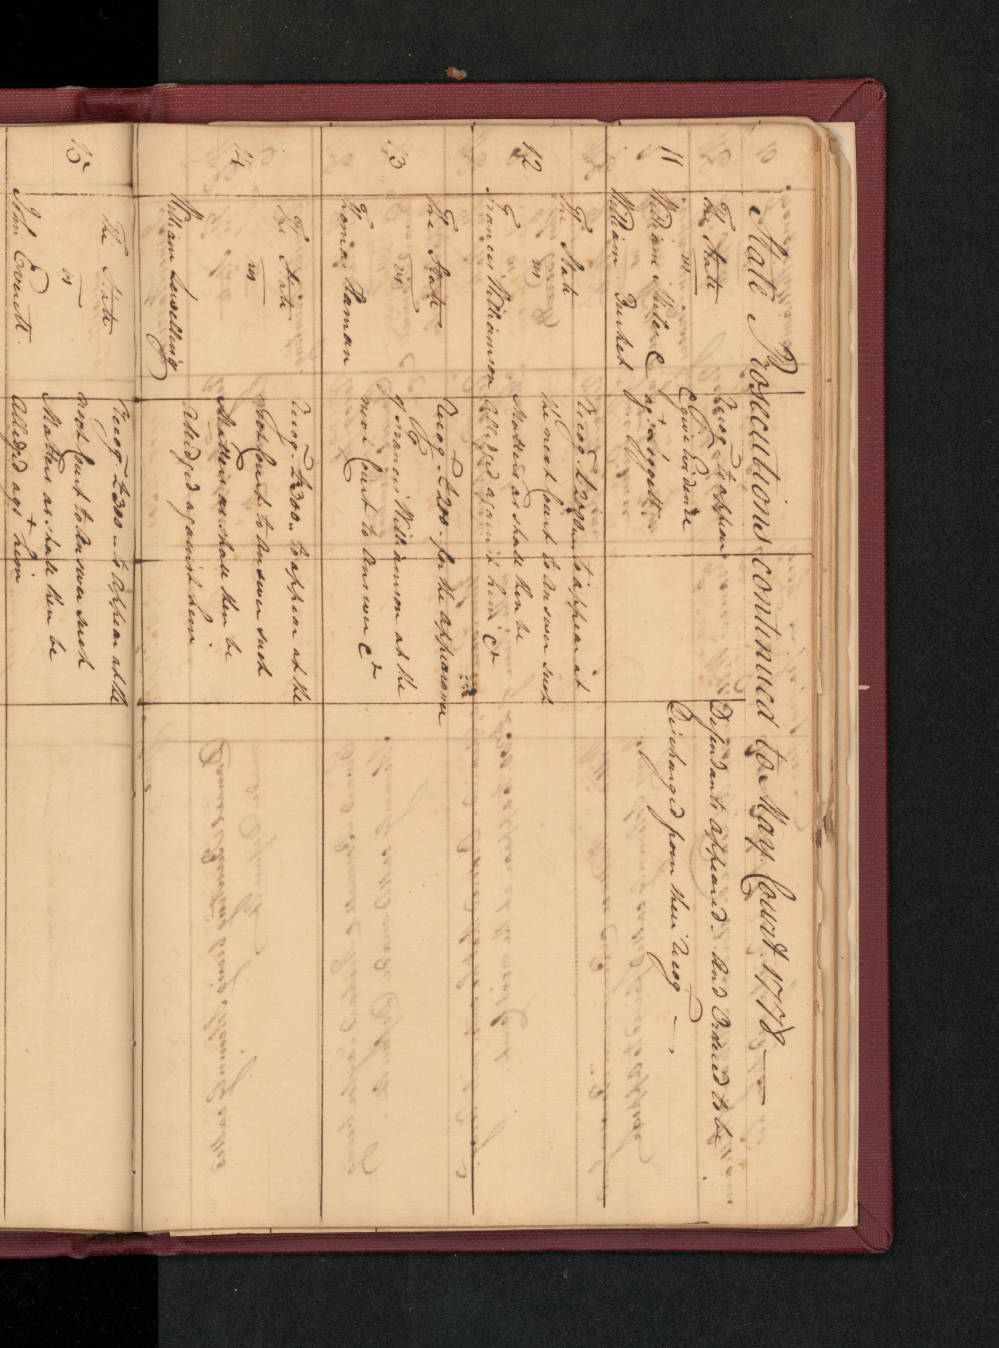 State Prosecutions continued to May Court 1778
11
The State
vs
William Miller &
William Burket
Recog. to appear
& give Evidence
agst Leggett
Defendants appeared. And Ordered to be
Discharged from their Recog
12
The State
vs
Francis Williamson
Recog. to appear at
the next Court to Answer such
Matters as shall then be
Alledged against him &c
13
The State
vs
Thomas Harman
Recog. £200. for the appearance
of Francis Williamson at the
next Court to Answer &c
14
The State
vs
William Lewelling
Recog. £200. to appear at the
next Court to Answer such
Matters as shall then be
Alledged against him
15
The State
vs
John Everett.
Recog. £200. to appear at the
next Court to Answer such
Matters as shall then be
Alledged agst him